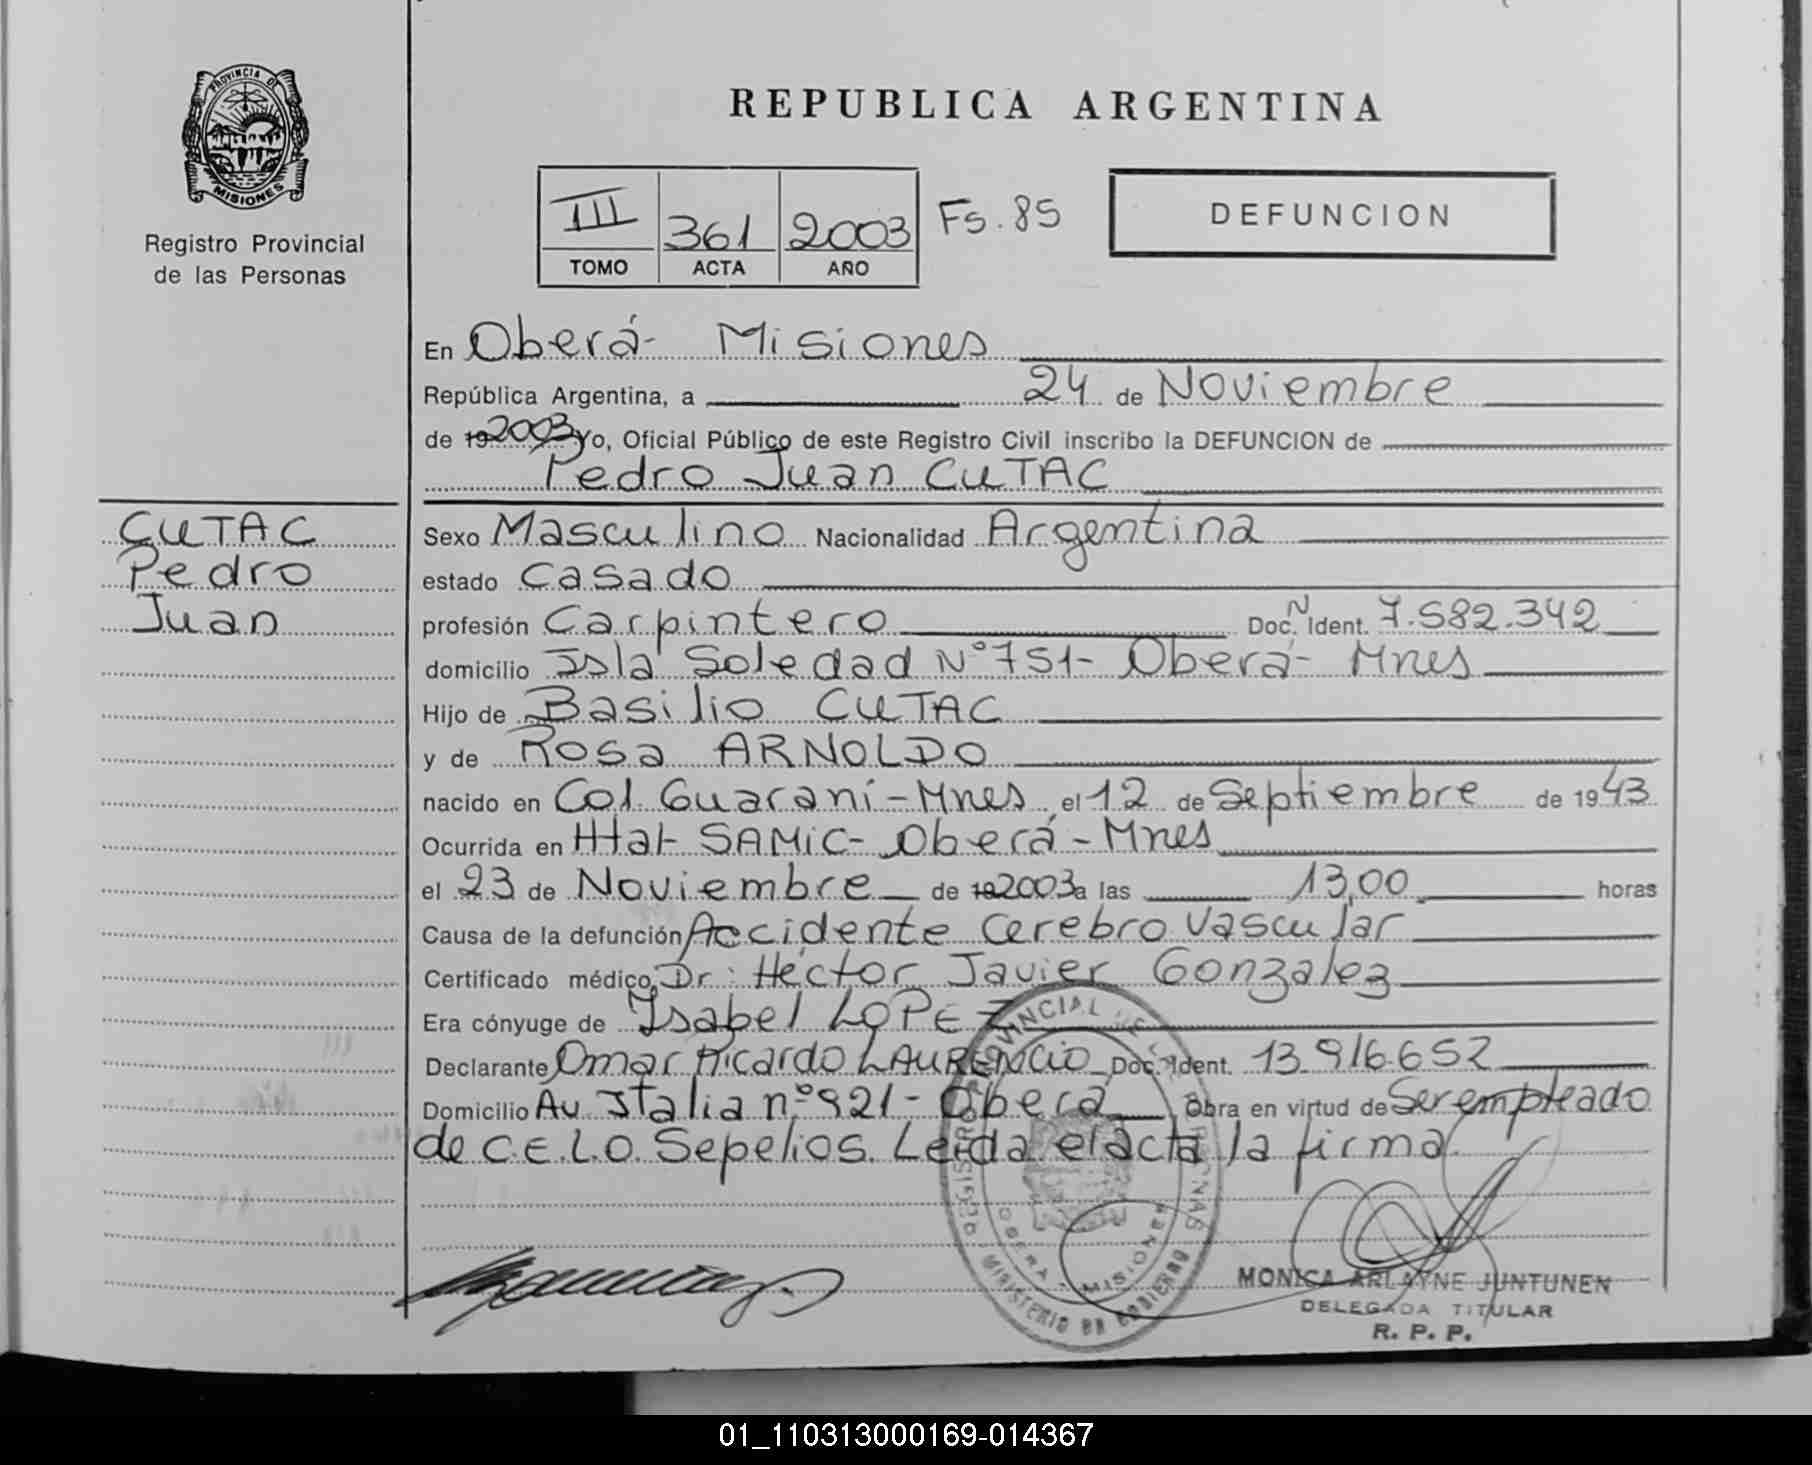 PROVINCIA DE
MISIONES
Registro Provincial
de las Personas
REPUBLICA ARGENTINA
III 361 2003 Fs. 85
TOMO ACTA AÑO
DEFUNCION
En Oberá- Misiones
República Argentina, a 24 de Noviembre
de 19 2003 Yo, Oficial Público de este Registro Civil inscribo la DEFUNCION de
Pedro Juan CUTAC
CUTAC
Pedro
Juan
Sexo Masculino Nacionalidad Argentina
estado Casado
profesión Carpintero Doc. N Ident. 7.582.342
domicilio Isla Soledad N° 751- Oberá- Mnes
Hijo de Basilio CUTAC
y de Rosa ARNOLDO
nacido en Col. Guaraní-Mnes, el 12 de Septiembre de 1943
Ocurrida en Htal- SAMIC- Oberá-Mnes
el 23 de Noviembre de 19 2003 a las 13,00 horas
Causa de la defunción Accidente Cerebro Vascular
Certificado médico Dr: Héctor Javier Gonzalez
Era cónyuge de Isabel LOPEZ
Declarante Omar Ricardo LAURENCIO Doc. Ident. 13.916.652
Domicilio Av Italia n° 921- Oberá Obra en virtud de Ser empleado
de C.E.L.O. Sepelios. Leída el acta la firma.
REGISTRO PROVINCIAL DE LAS PERSONAS
OBERA - MISIONES
MINISTERIO DE GOBIERNO
MONICA ARLAYNE JUNTUNEN
DELEGADA TITULAR
R. P. P.
01_110313000169-014367